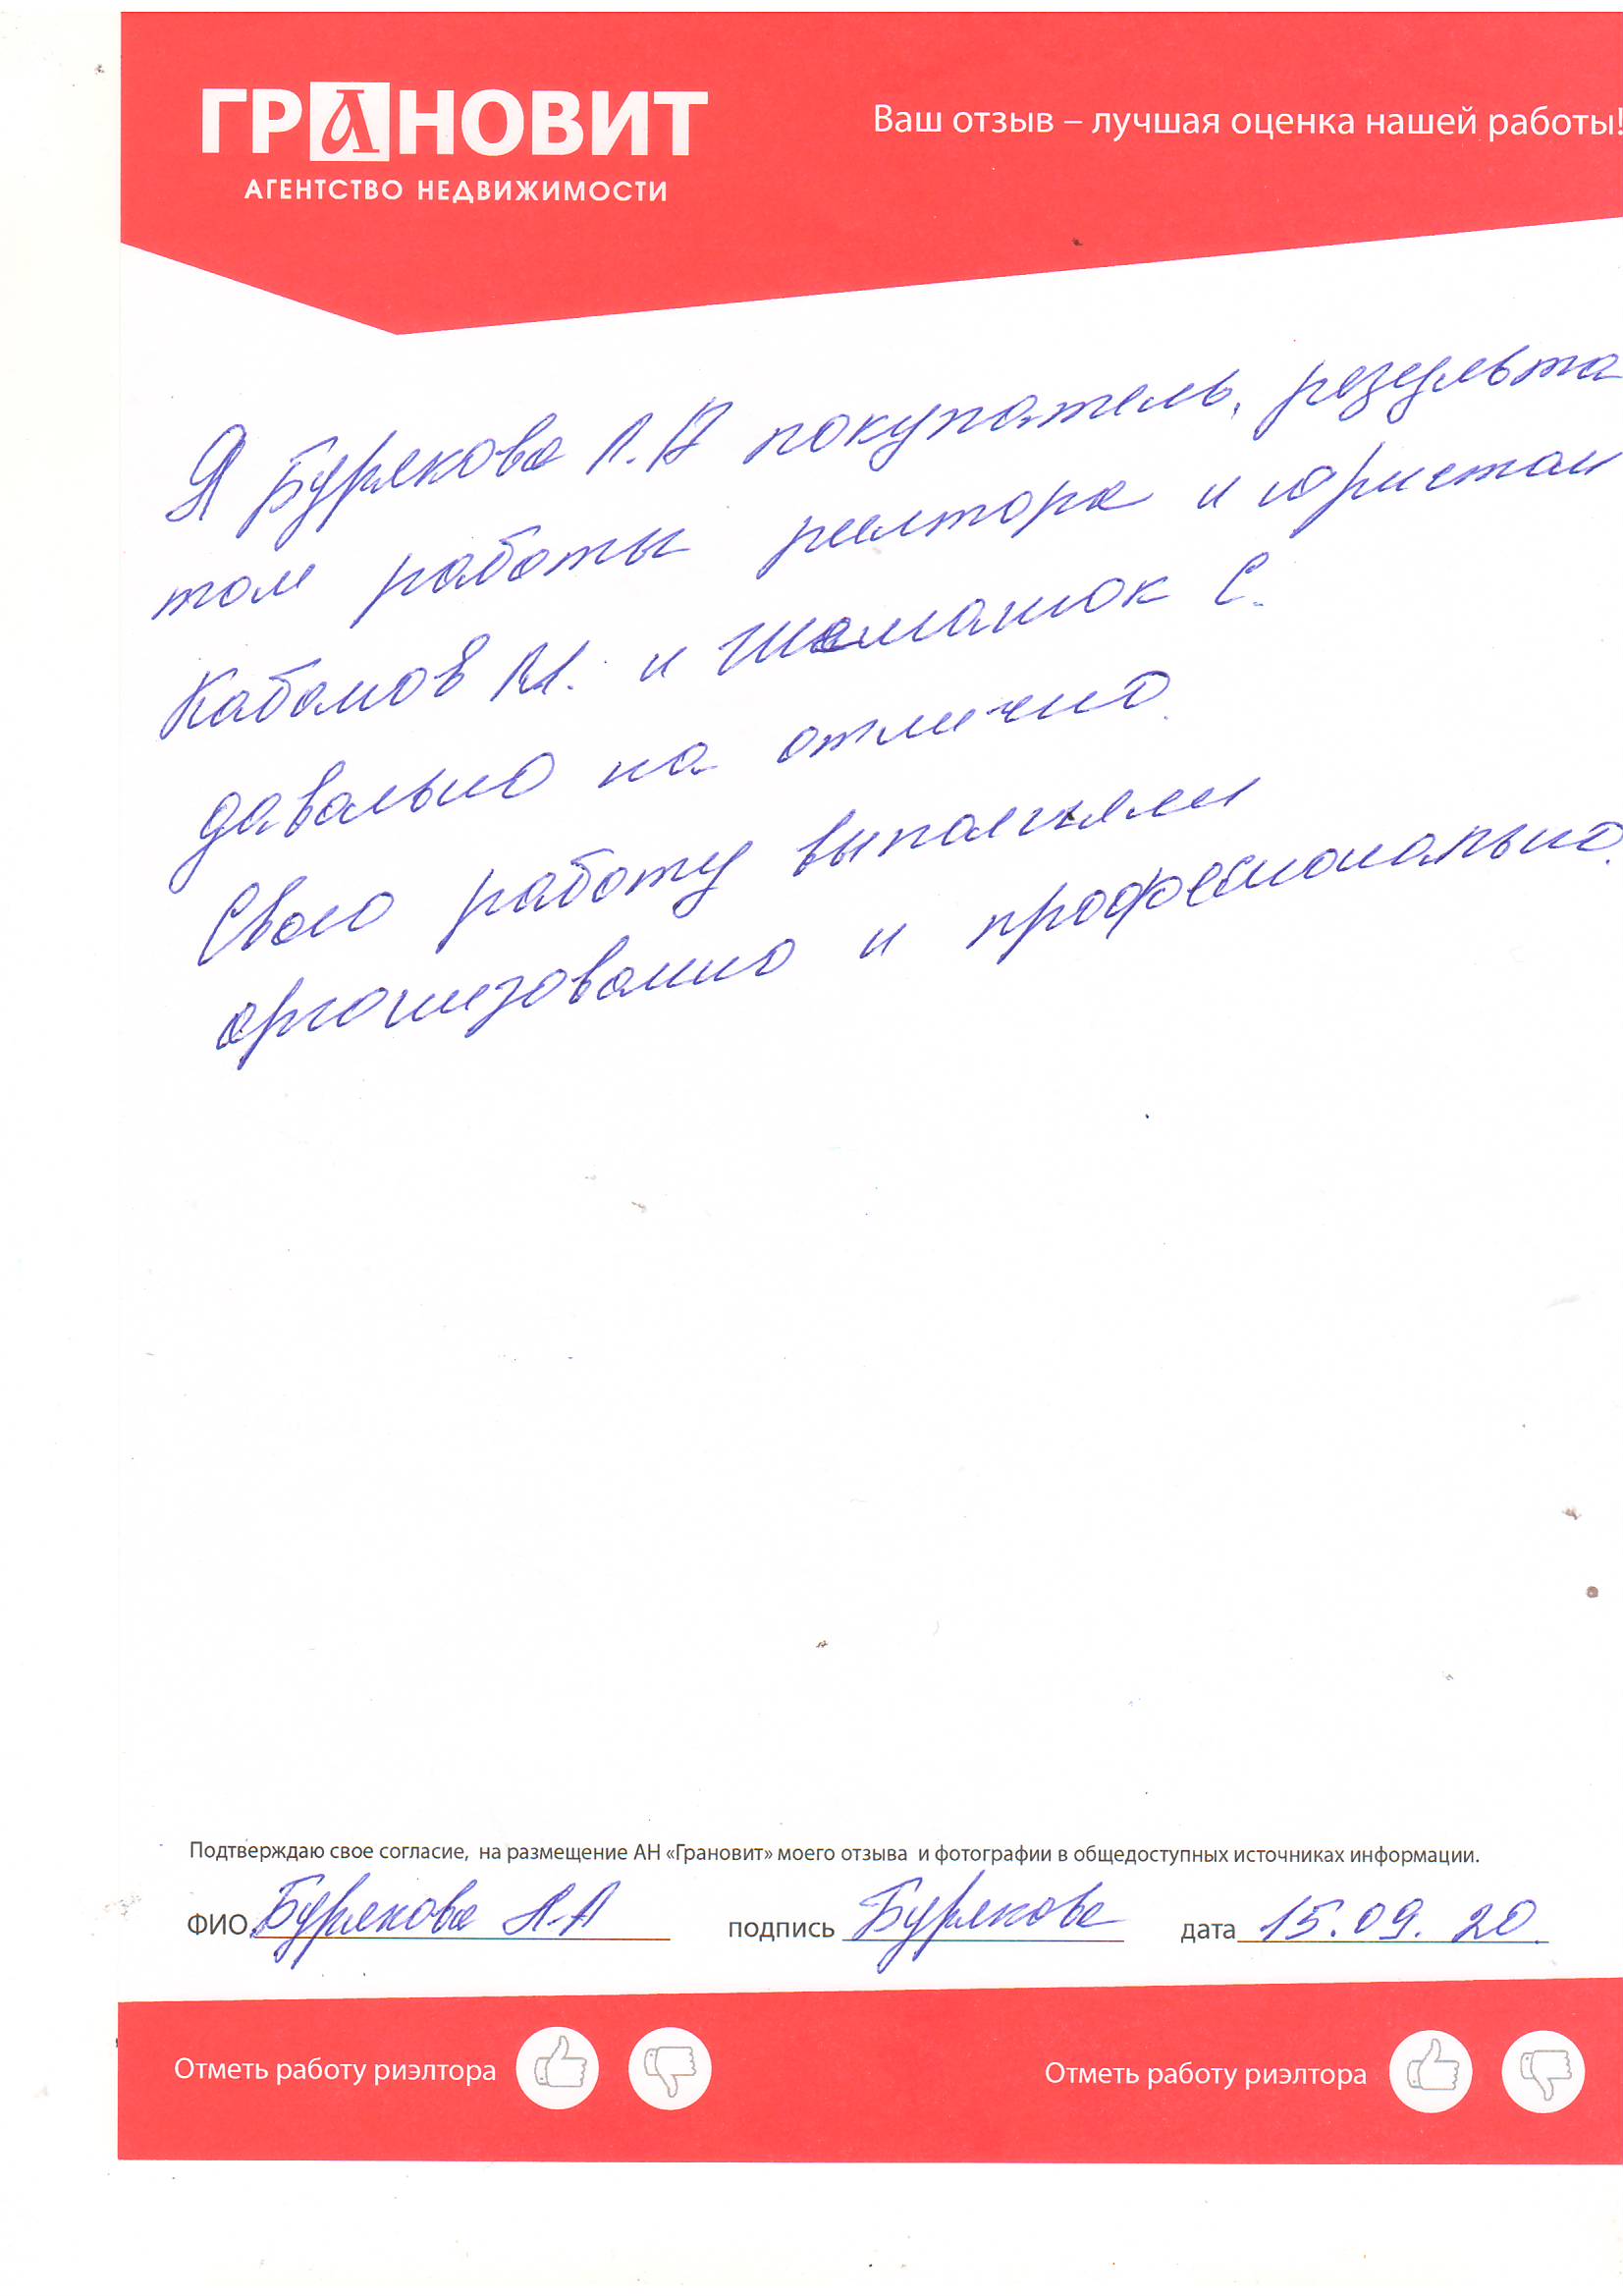 ГРАНОВИТ
АГЕНТСТВО НЕДВИЖИМОСТИ
Ваш отзыв – лучшая оценка нашей работы!
Я Бурякова Л.А покупатель, результа
том работы риелтора и юристом
Кабанов М. и Шаманюк С.
давольно на отлично.
Свою работу выполняли
организованно и професионально.
Подтверждаю свое согласие, на размещение АН «Грановит» моего отзыва и фотографии в общедоступных источниках информации.
ФИО Бурякова Л.А подпись Бурякова дата 15.09.20
Отметь работу риэлтора Отметь работу риэлтора